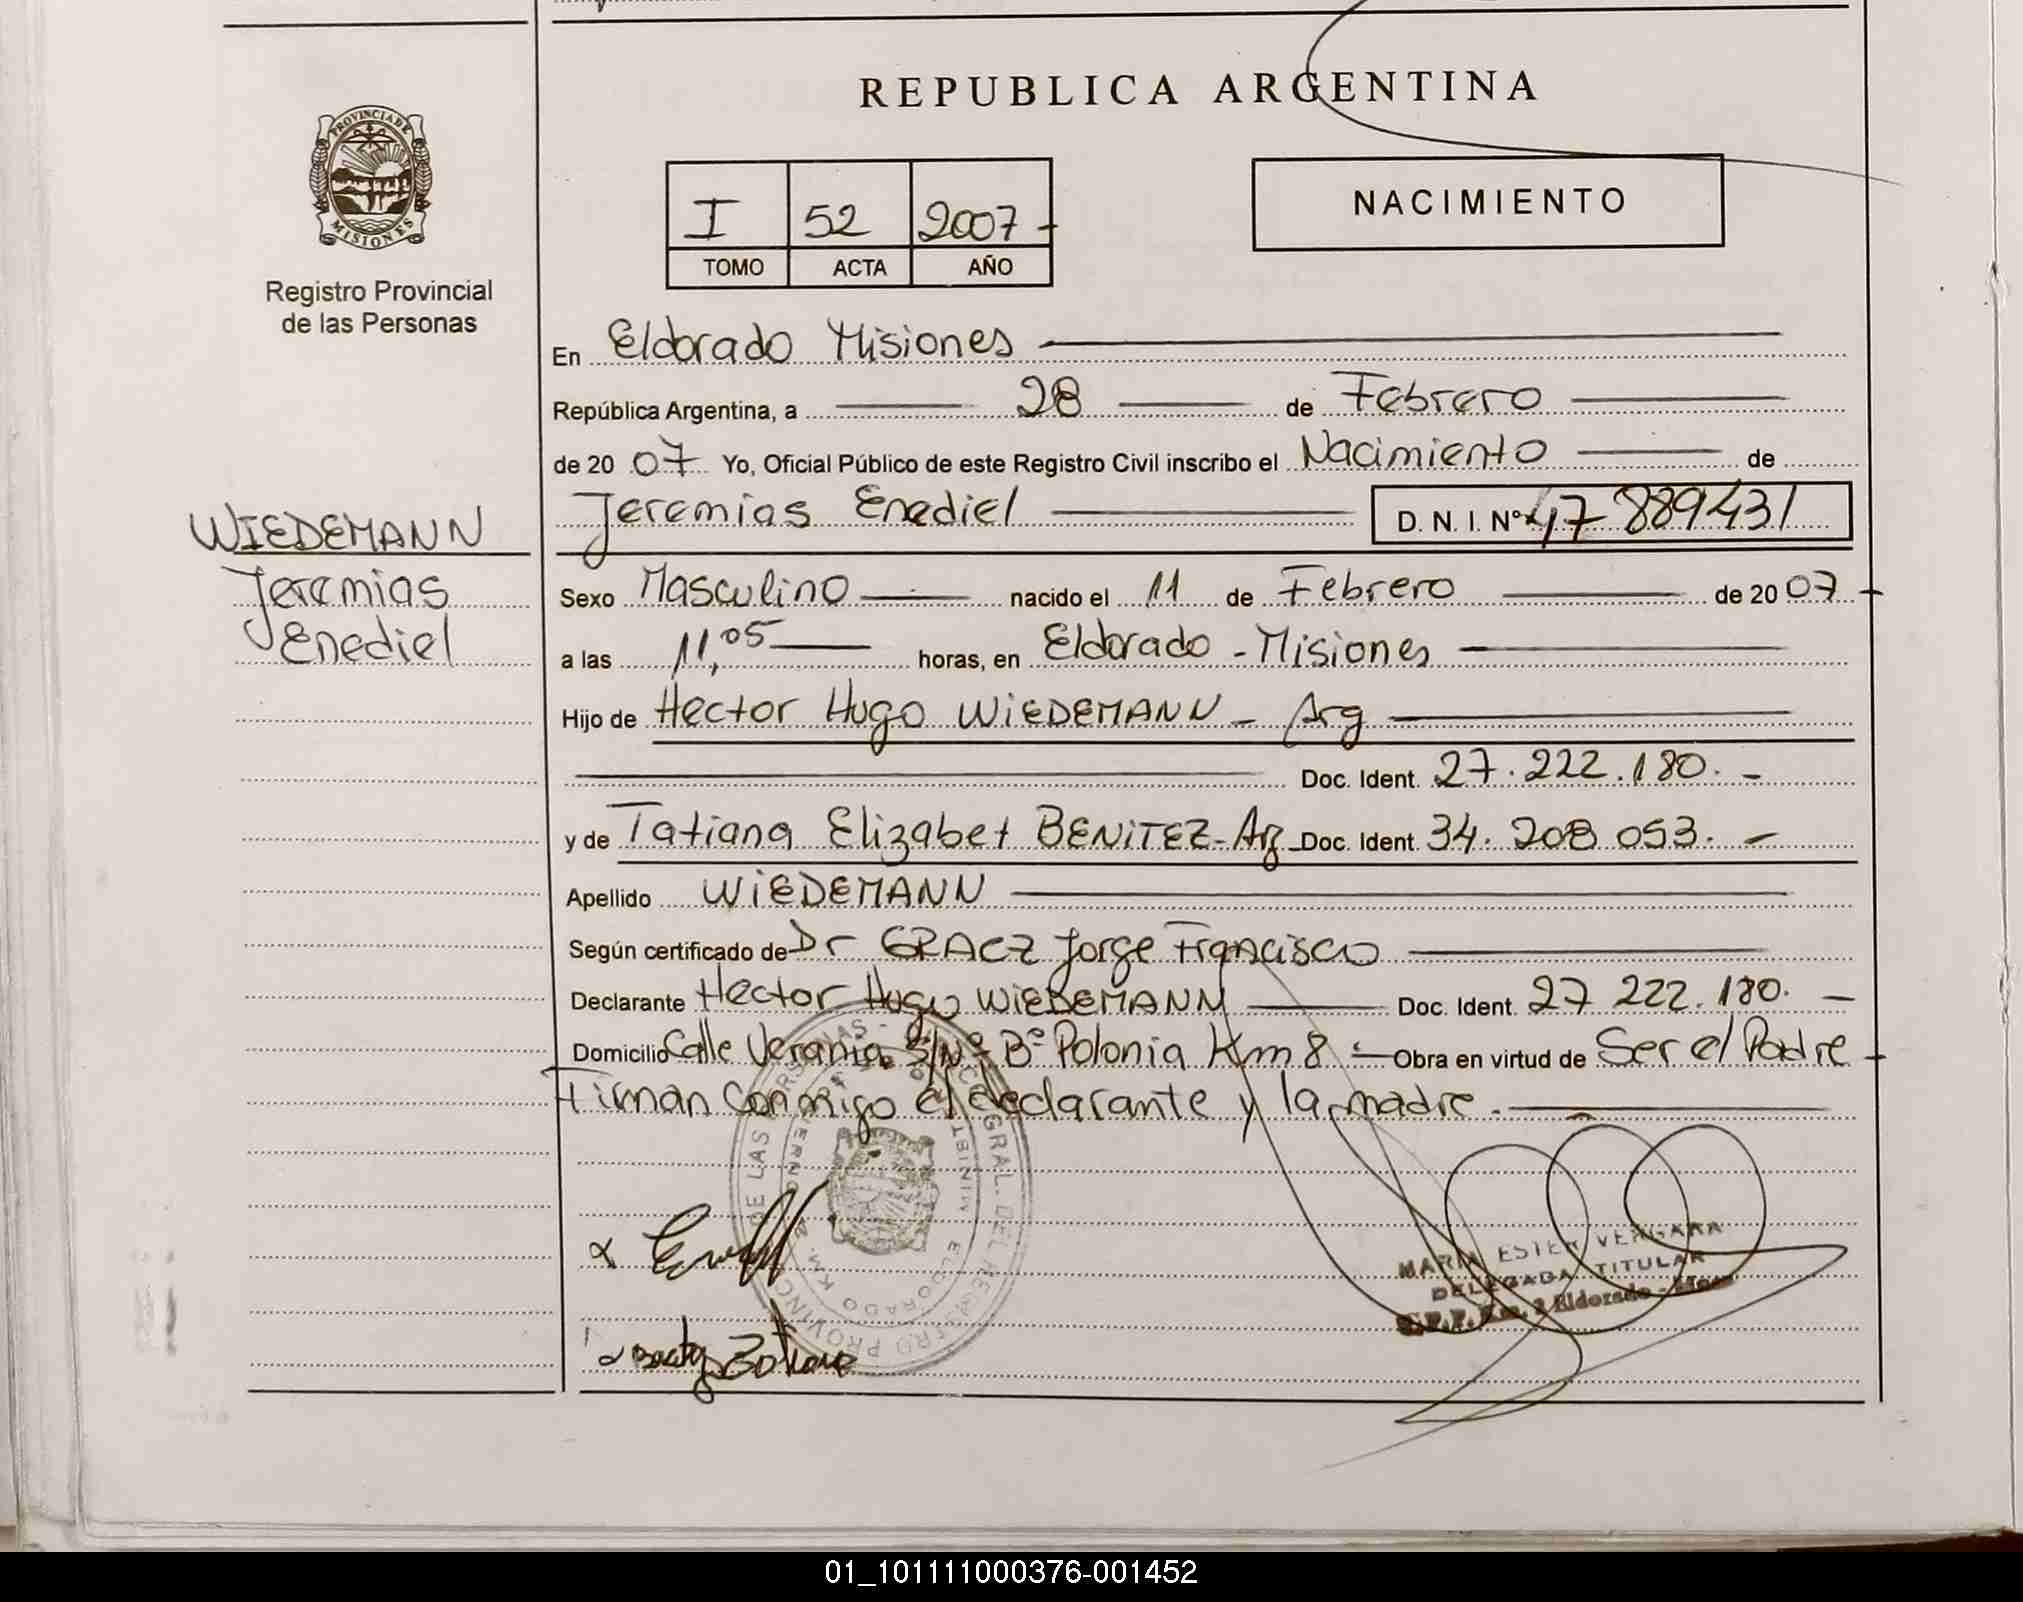 REPUBLICA ARGENTINA
PROVINCIA DE
MISIONES
Registro Provincial
de las Personas
I 52 2007-
TOMO ACTA AÑO
NACIMIENTO
En Eldorado Misiones
República Argentina, a 28 de Febrero
de 20 07 Yo, Oficial Público de este Registro Civil inscribo el Nacimiento de
Jeremias Enediel D. N. I. Nº 47 889431
WIEDEMANN
Jeremias
Enediel
Sexo Masculino nacido el 11 de Febrero de 20 07
a las 11,05 horas, en Eldorado - Misiones
Hijo de Hector Hugo WIEDEMANN - Arg
Doc. Ident. 27.222.180.-
y de Tatiana Elizabet BENITEZ-Arg Doc. Ident. 34.208 053.-
Apellido WIEDEMANN
Según certificado de Dr GRACZ Jorge Francisco
Declarante Hector Hugo WIEDEMANN Doc. Ident. 27 222.180.-
Domicilio Calle Verania S/Nº Bº Polonia Km 8 - Obra en virtud de Ser el Padre
Firman conmigo el declarante y la madre.
MARIA ESTER VERGARA
DELEGADA TITULAR
Eldorado
01_101111000376-001452